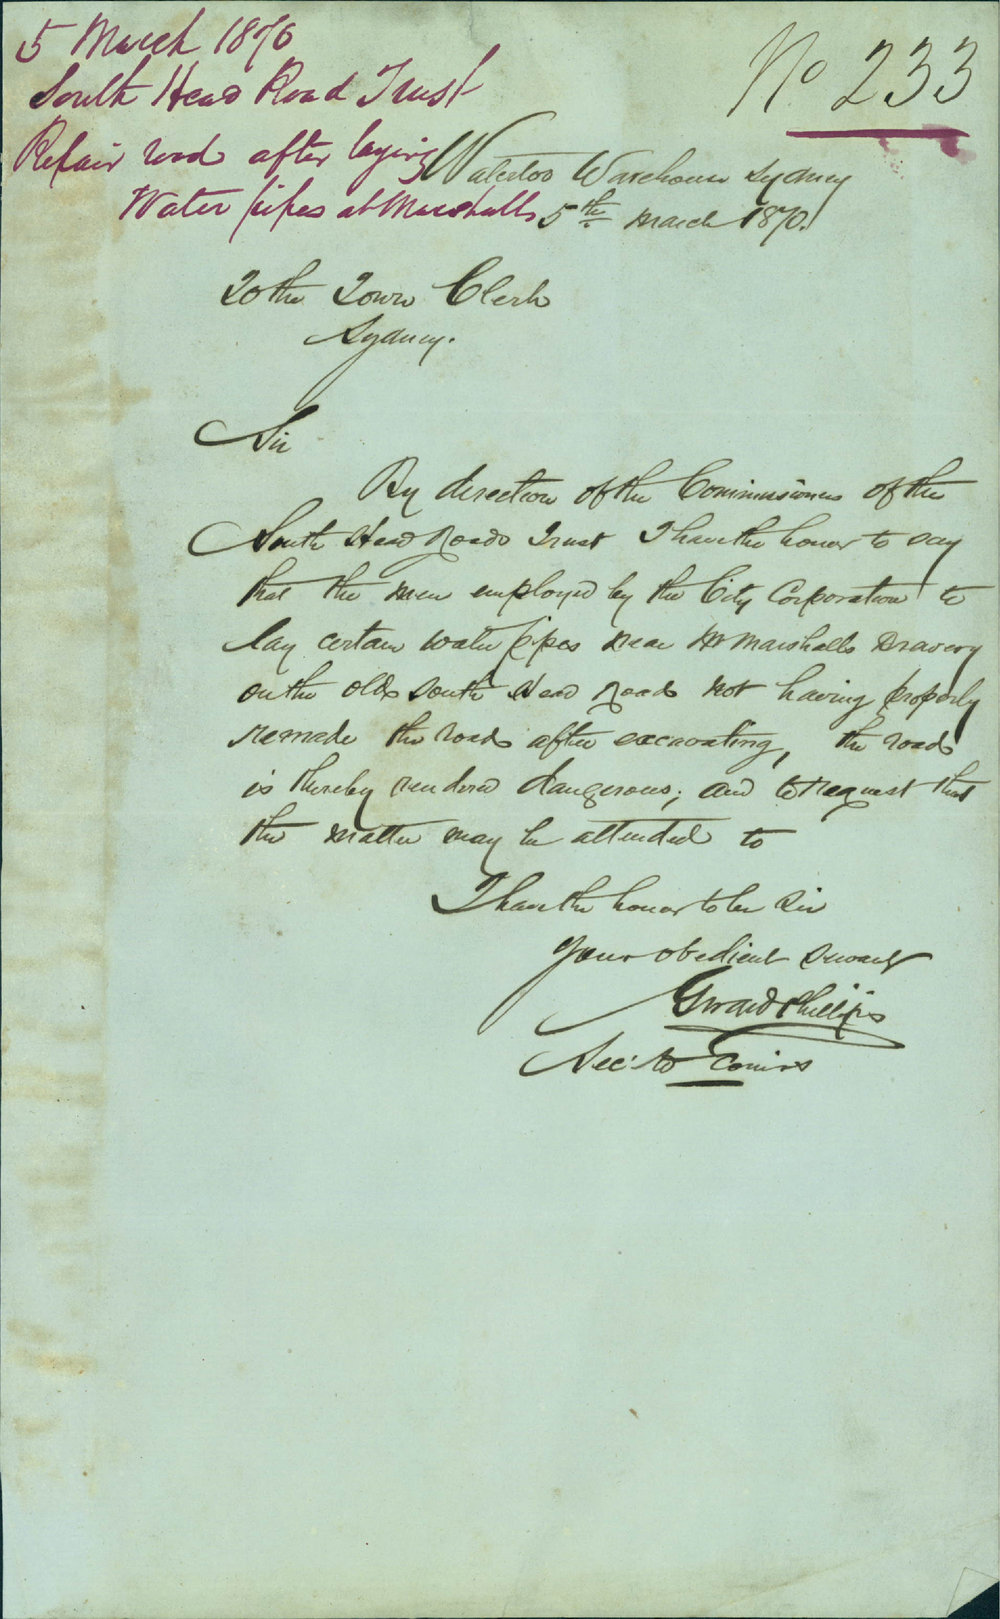 5 March 1870
South Head Road Trust
Repair road after laying
Water pipes at Marshalls
No 233
Waterloo Warehouse Sydney
5th March 1870.
To the Town Clerk
Sydney.
Sir
By direction of the Commissioners of the
South Head Roads Trust I have the honor to say
that the men employed by the City Corporation to
lay certain water pipes near Mr Marshalls Brewery
on the old South Head Road not having properly
remade the road after excavating, the road
is thereby rendered dangerous; and to request that
the matter may be attended to
I have the honor to be Sir
Your obedient servant
Gerard Phillips
Sec: to Comrs